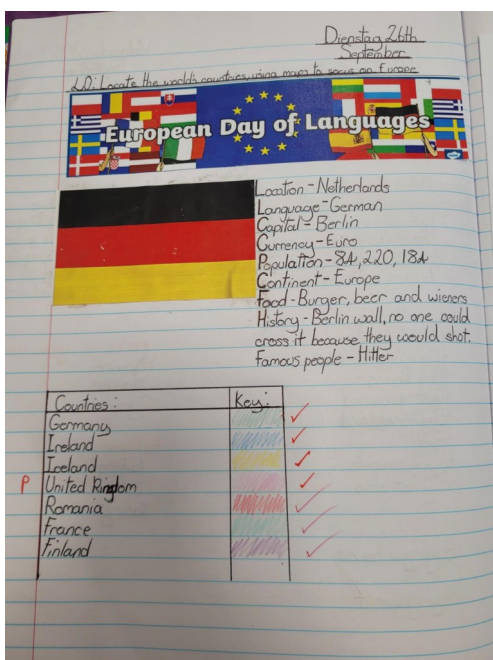 Dienstag 26th
September
LO: Locate the world's countries, using maps to focus on Europe
European Day of Languages
Location - Netherlands
Language - German
Capital - Berlin
Currency - Euro
Population - 84,220,184
Continent - Europe
Food - Burger, beer and wieners
History - Berlin wall, no one could
cross it because they would shot.
Famous people - Hitler
Countries :
Key :
Germany
Ireland
Iceland
P
United Kingdom
Romania
France
Finland